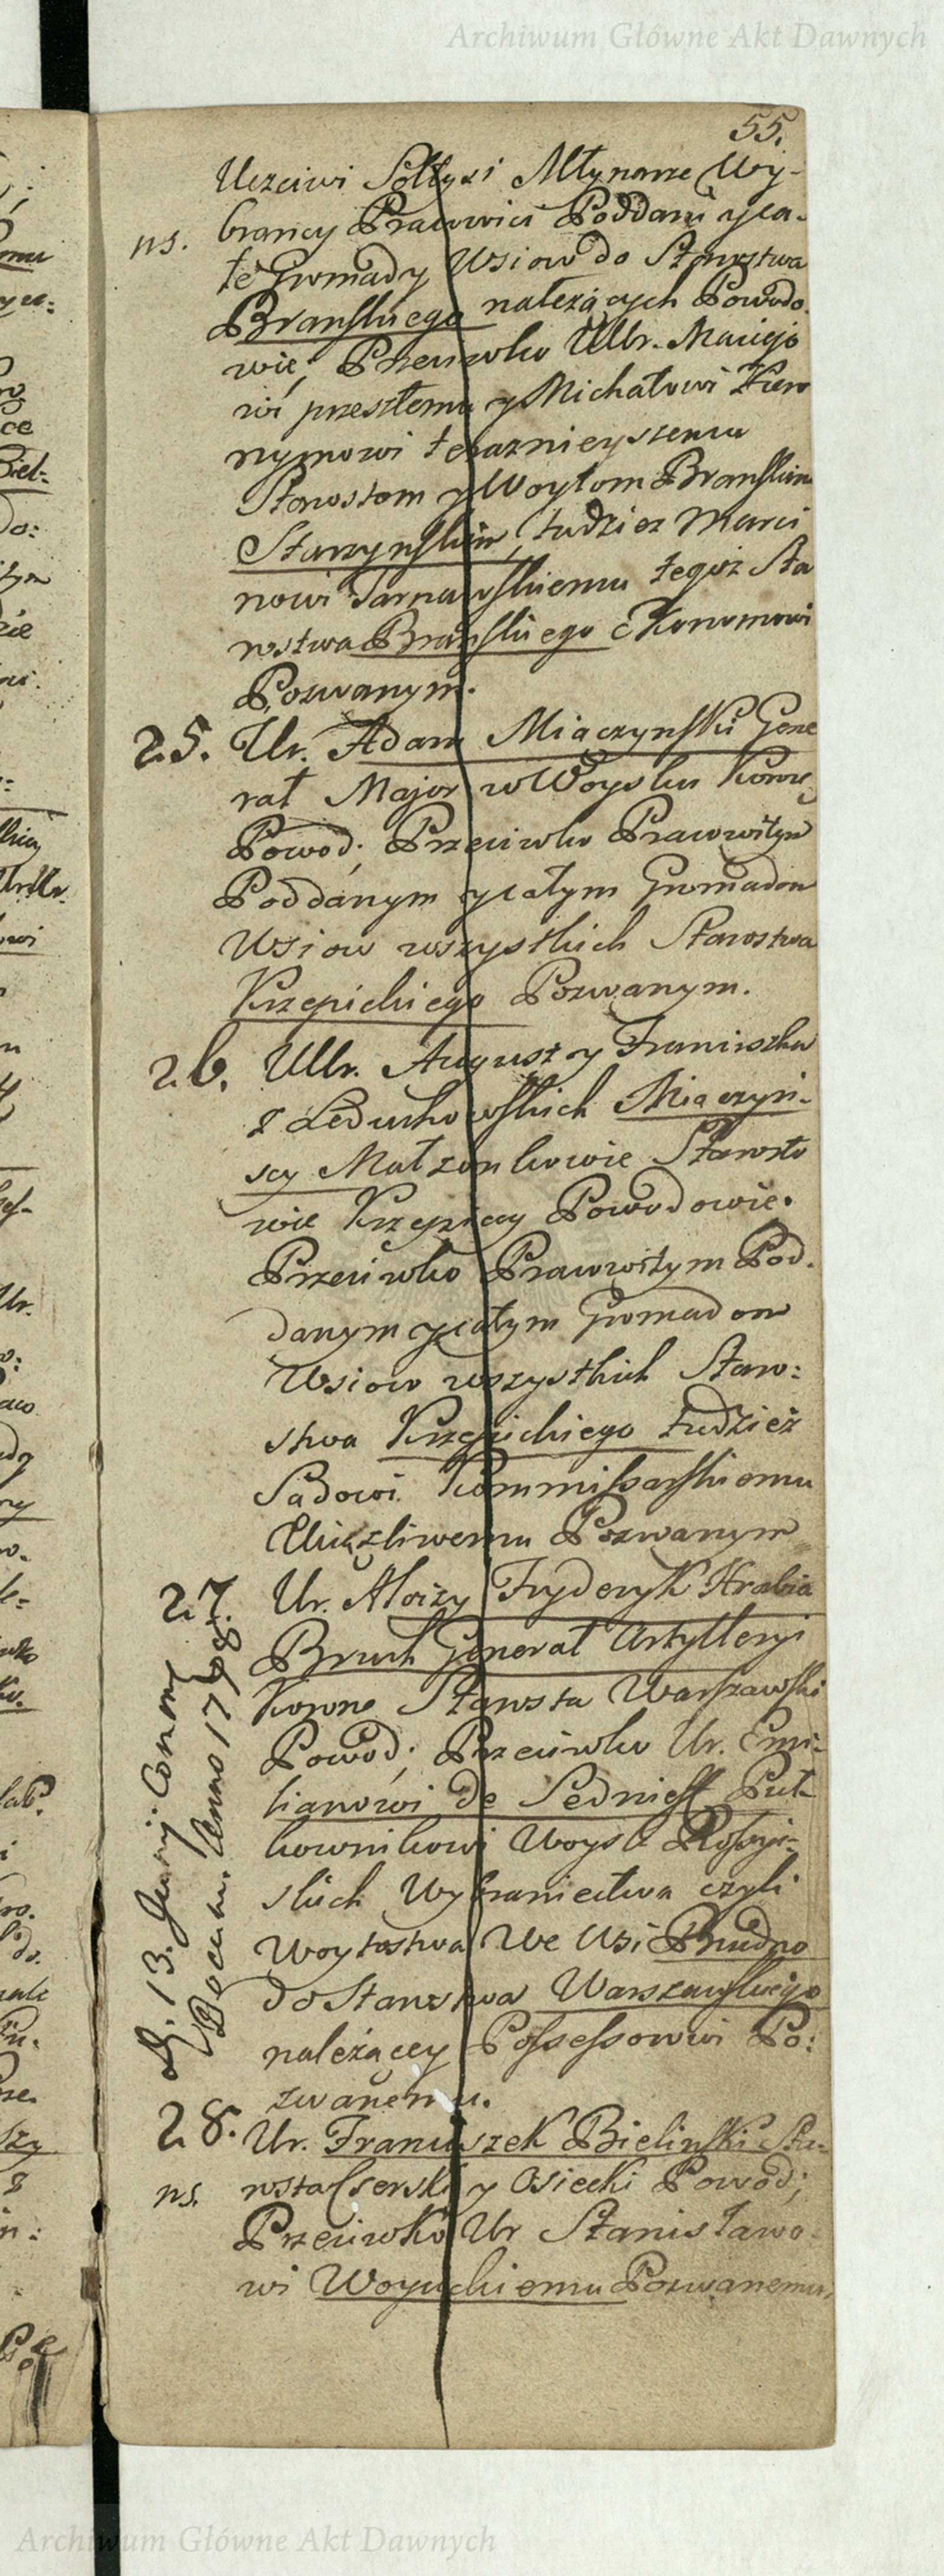 Archiwum Główne Akt Dawnych
55.
Uczciwi Sołtysi Młynarze Wy-
ns. brancy Pracowici Poddani y ca-
łe Gromady Wsiow do Starostwa
Branskiego należących Powodo-
wie; Przeciwko UUr. Maciejo
wi przeszłemu y Michałowi Hiero
nymowi teraznieyszemu
Starostom y Woytom Branskim
Starzynskim, tudziez Marci
nowi Tarnawskiemu tegoż Sta
rostwa Branskiego Ekonomowi
Pozwanym.
25. Ur. Adam Miączynski Gene
rał Major w Woysku Koron
Powod; Przeciwko Pracowitym
Poddanym y całym Gromadom
Wsiow wszystkich Starostwa
Krzepickiego Pozwanym.
26. UUr. August y Franciszka
z Leduchowskich Miączyn-
scy Małzonkowie Starosto
wie Krzepiccy Powodowie.
Przeciwko Pracowitym Pod-
danym y całym Gromadom
Wsiow wszystkich Staro:
stwa Krzepickiego tudzież
Sądowi Kommissarskiemu
Uciążliwemu Pozwanym
27. Ur. Aloizy Fryderyk Hrabia
Bruch Generał Artylleryi
Koronne Starosta Warszawski
Powod; Przeciwko Ur. Emi-
lianowi de Sedniest Puł-
kownikowi Woysk Rossyi-
skich Wybraniectwa czyli
Woytostwa We Wsi Brudno
do Starostwa Warszawskiego
należącey Possessorowi Po:
zwanemu.
D. 13. Junij Conom
Docum. Anno 1768.
28. Ur. Franciszek Bielinski Sta-
ns. rosta Czerski y Osiecki Powod;
Przeciwko Ur Stanisławo-
wi Woyuckiemu Pozwanemu,
Archiwum Główne Akt Dawnych